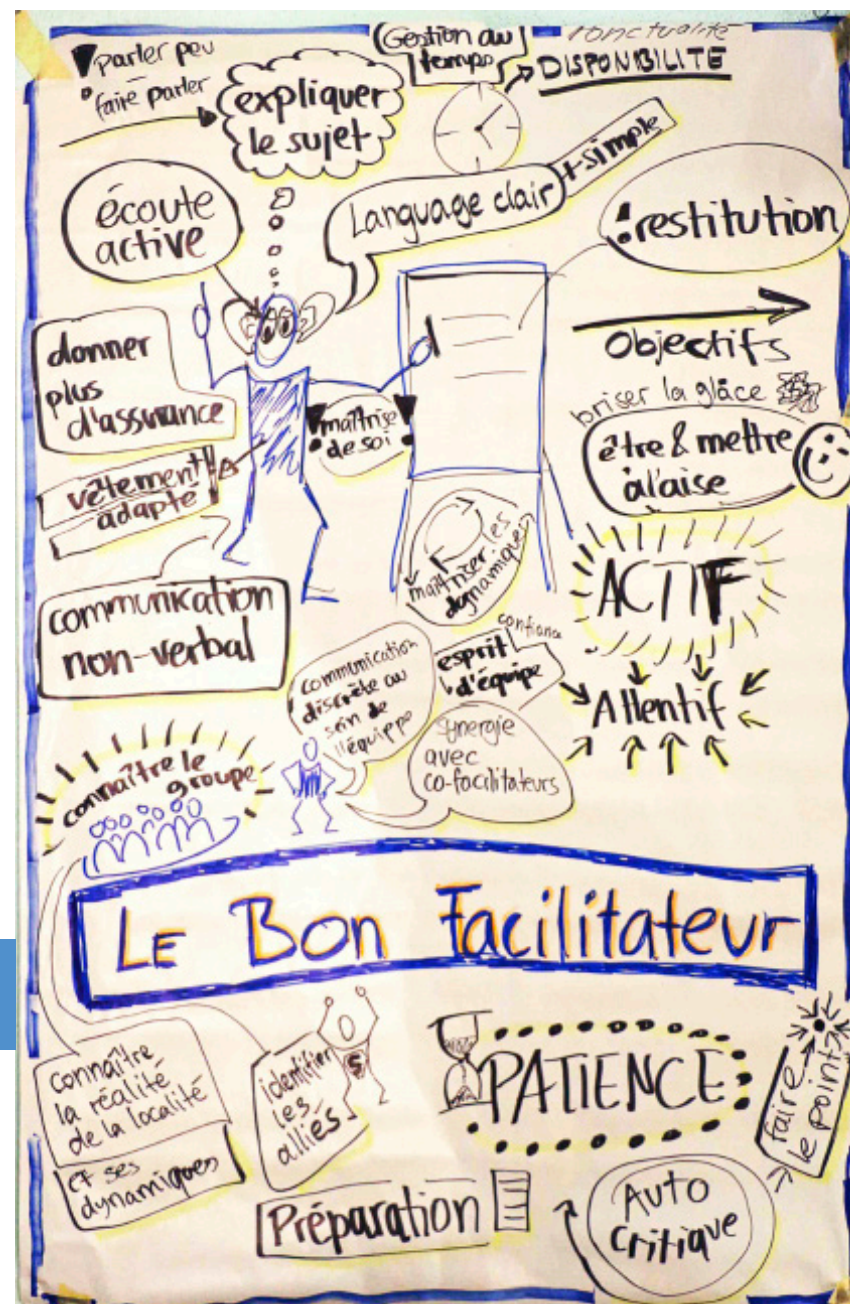 Parler peu
faire parler
expliquer
le sujet
Gestion du
temps
Ponctualité
DISPONIBILITE
écoute
active
Language clair
+ simple
! restitution
donner
plus
d'assurance
maîtrise
de soi
Objectifs
briser la glâce
être & mettre
à l'aise
vêtement
adapte
communication
non-verbal
maîtriser les
dynamiques
ACTIF
Attentif
communication
discrète au
sein de
l'équippe
confiance
esprit
d'équipe
synergie
avec
co-facilitateurs
connaître le
groupe
LE BON Facilitateur
connaître
la réalité
de la localité
et ses
dynamiques
identifier
les
alliés
S
PATIENCE
faire
le point
Préparation
Auto
critique